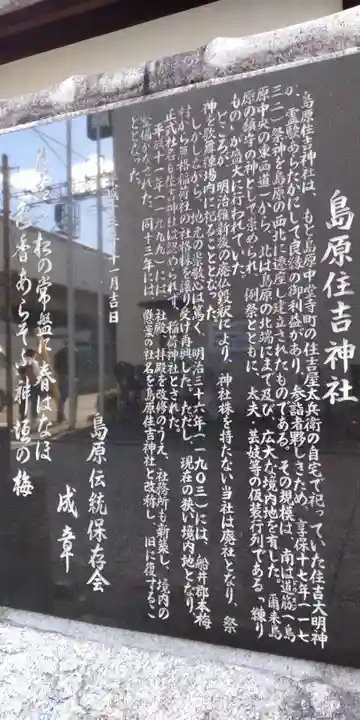 島原住吉神社
島原住吉神社は、もと島原中堂寺町の住吉屋太兵衛の自宅で祀っていた住吉大明神
が、霊験あらたかにして良縁の御利益があり、参詣者夥しきため、享保十七年（一七
三二）祭神を島原の西北に遷座し建立されたものである。その規模は、南は道筋（島
原中央の東西道）から、北は島原の北端にまで及び、広大な境内地を有した。爾来島
原の鎮守の神として崇められ、例祭とともに、太夫・芸妓等の仮装行列である「練り
もの」が盛大に行われていた。
ところが、明治維新後の廃仏毀釈により、神社株を持たない当社は廃社となり、祭
神を歌舞練場内に祀ることとなった。
しかし、地元の崇敬心は篤く、明治三十六年（一九〇三）には、船井郡本梅
村から無格社稲荷の社格株を譲り受け再興した。ただし、現在の狭い境内地となり、
正式社名も住吉神社は認められず、稲荷神社とされた。
平成十一年（一九九九）には、社殿・拝殿を改修のうえ、社務所も新築し、境内の
整備がなされた。同十三年には懸案の社名を島原住吉神社と改称し、旧に復すること
となった。
平成
十一月吉日
島原伝統保存会
松の常盤に春はなほ
色香あらそふ神垣の梅
成章